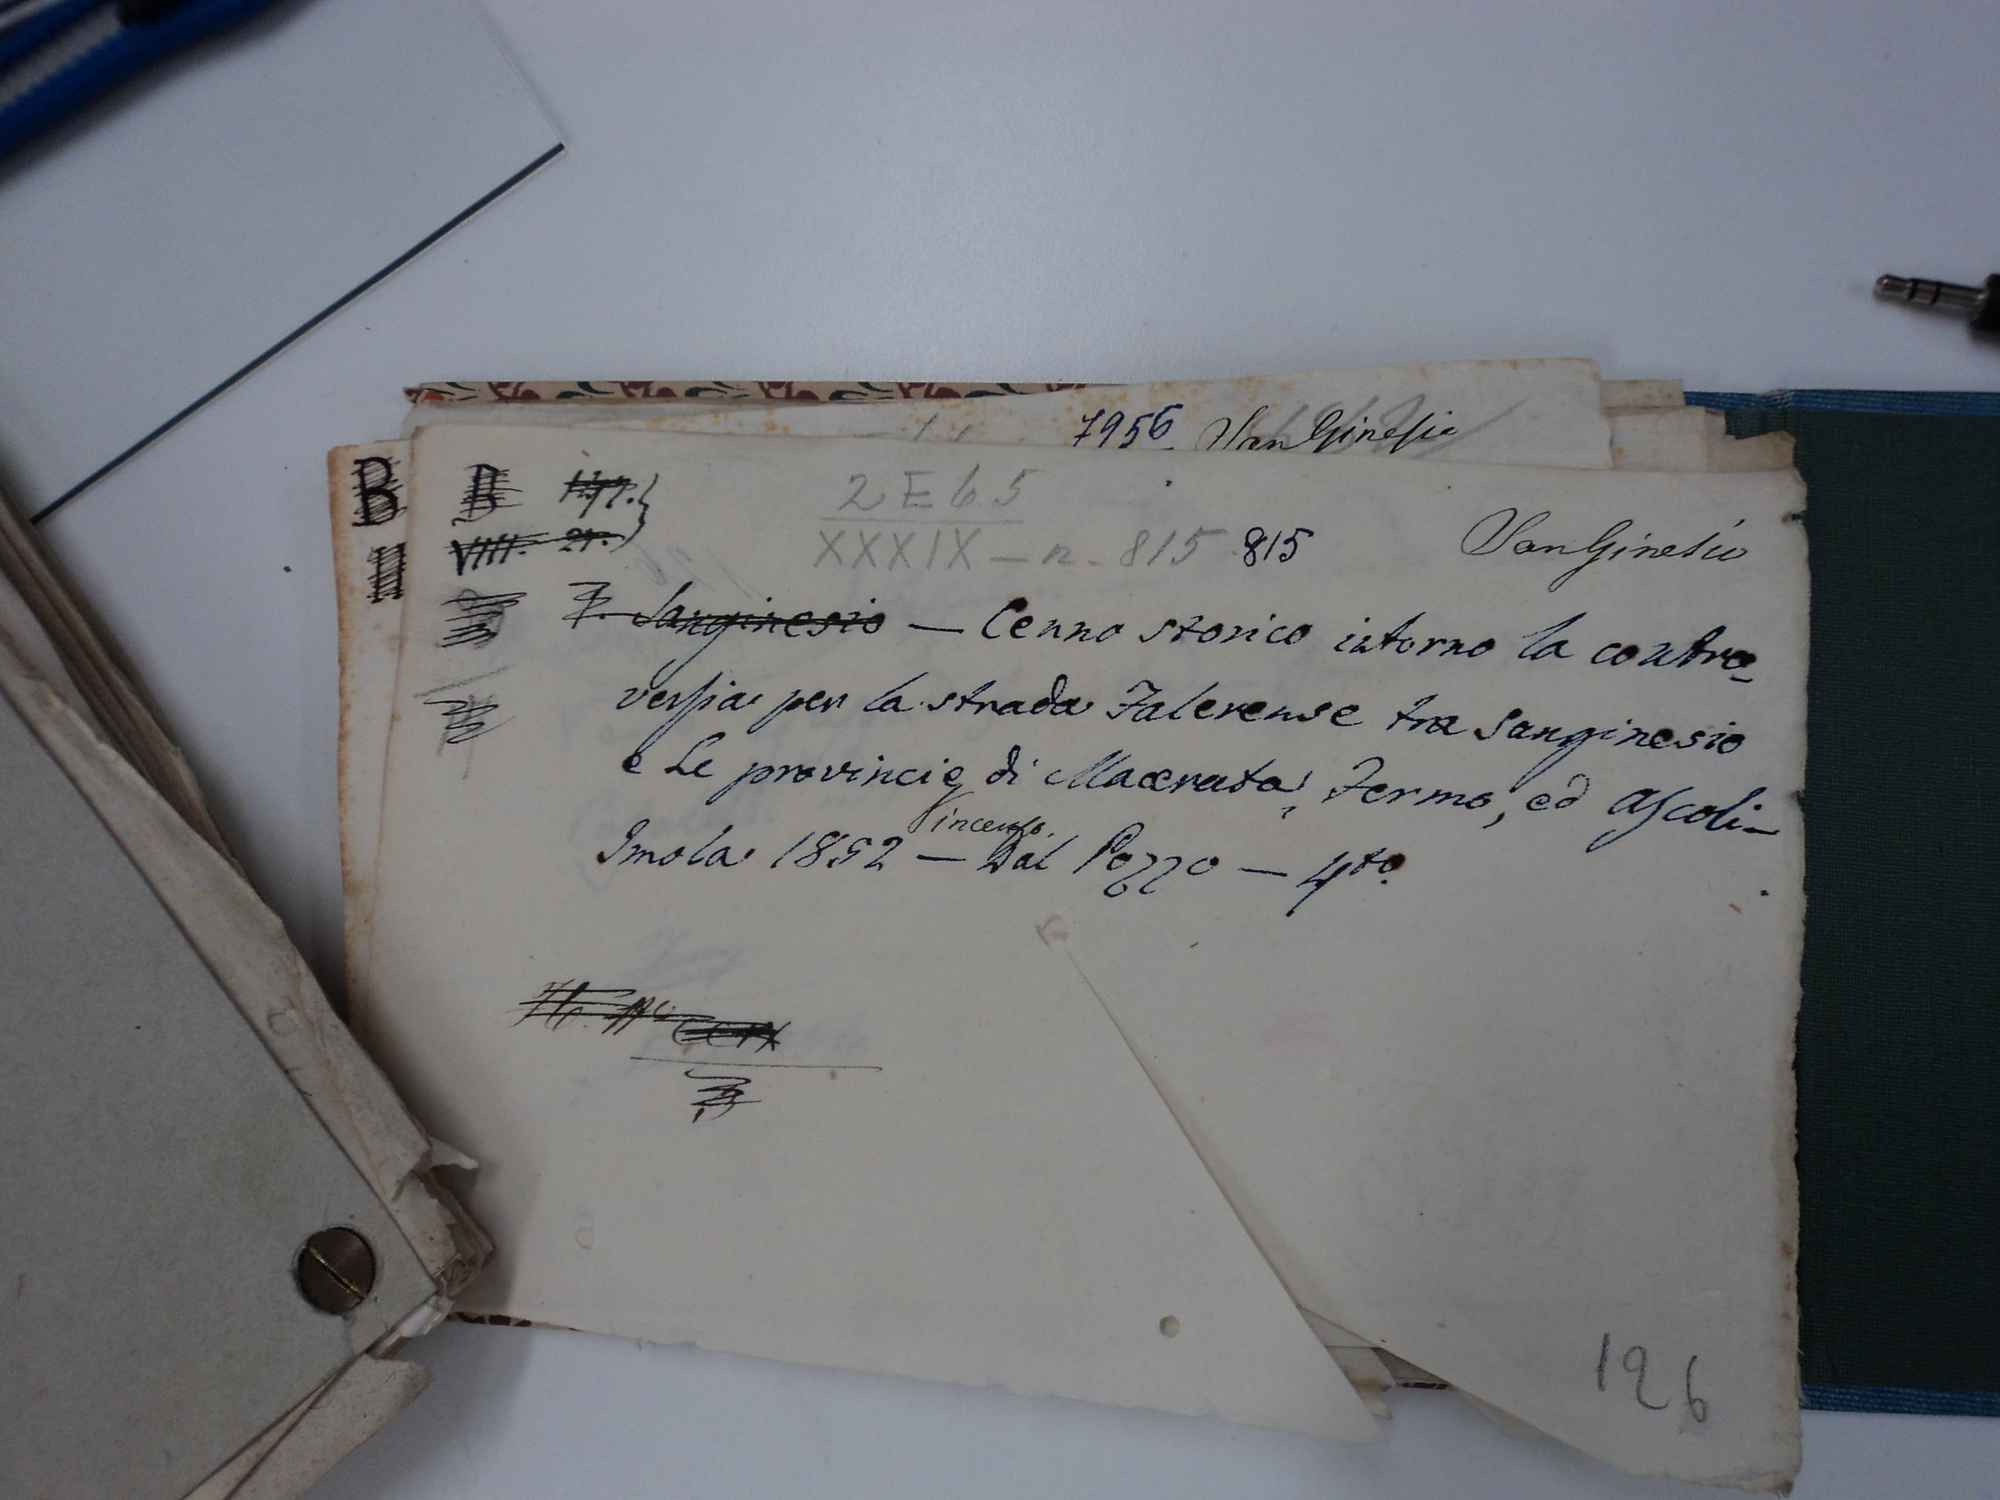 7956 San Ginesio
B B
VIII. 21.
2 E 6 5
XXXIX - n. 815 815
San Ginesio
Sanginesio — Cenno storico intorno la contro-
versia per la strada Falerense tra Sanginesio
e le provincie di Macerata, Fermo, ed Ascoli-
Imola 1852 — Vincenzo Dal Pozzo — 4to.
126